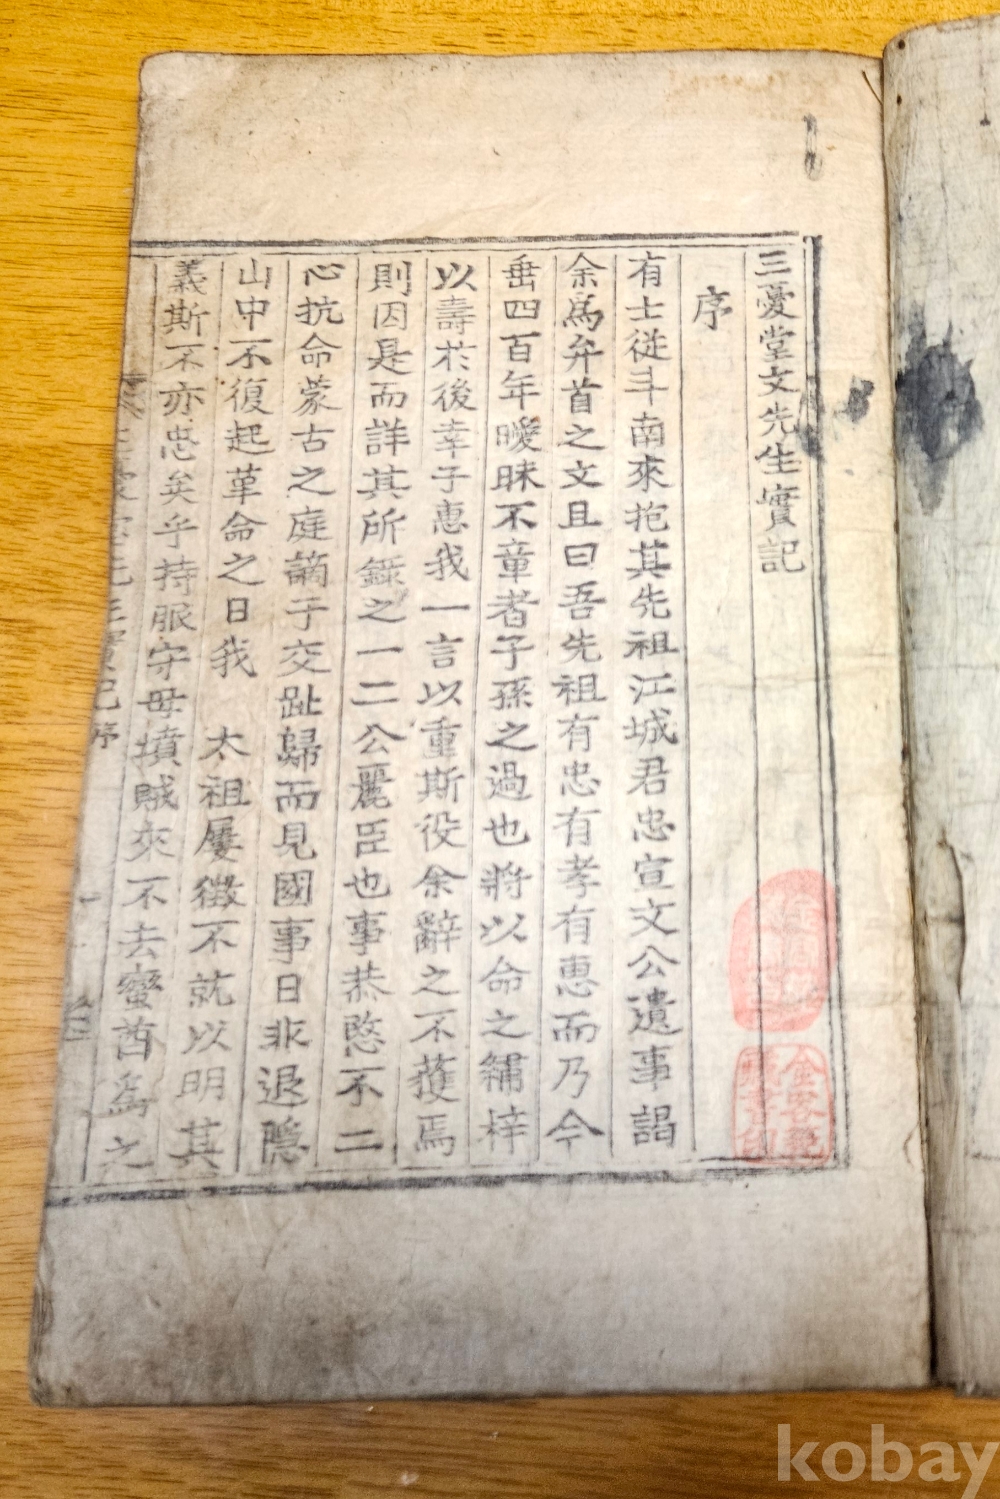 三憂堂文先生實記
序
有士從斗南來抱其先祖江城君忠宣文公遺事謁
余爲弁首之文且曰吾先祖有忠有孝有惠而乃今
垂四百年曖昧不章者子孫之過也將以命之繡梓
以壽於後幸子惠我一言以重斯役余辭之不獲焉
則因是而詳其所錄之一二公麗臣也事恭愍不二
心抗命蒙古之庭謫于交趾歸而見國事日非退隱
山中不復起革命之日我 太祖屢徵不就以明其
義斯不亦忠矣乎持服守母墳賊來不去蠻酋爲之
kobay